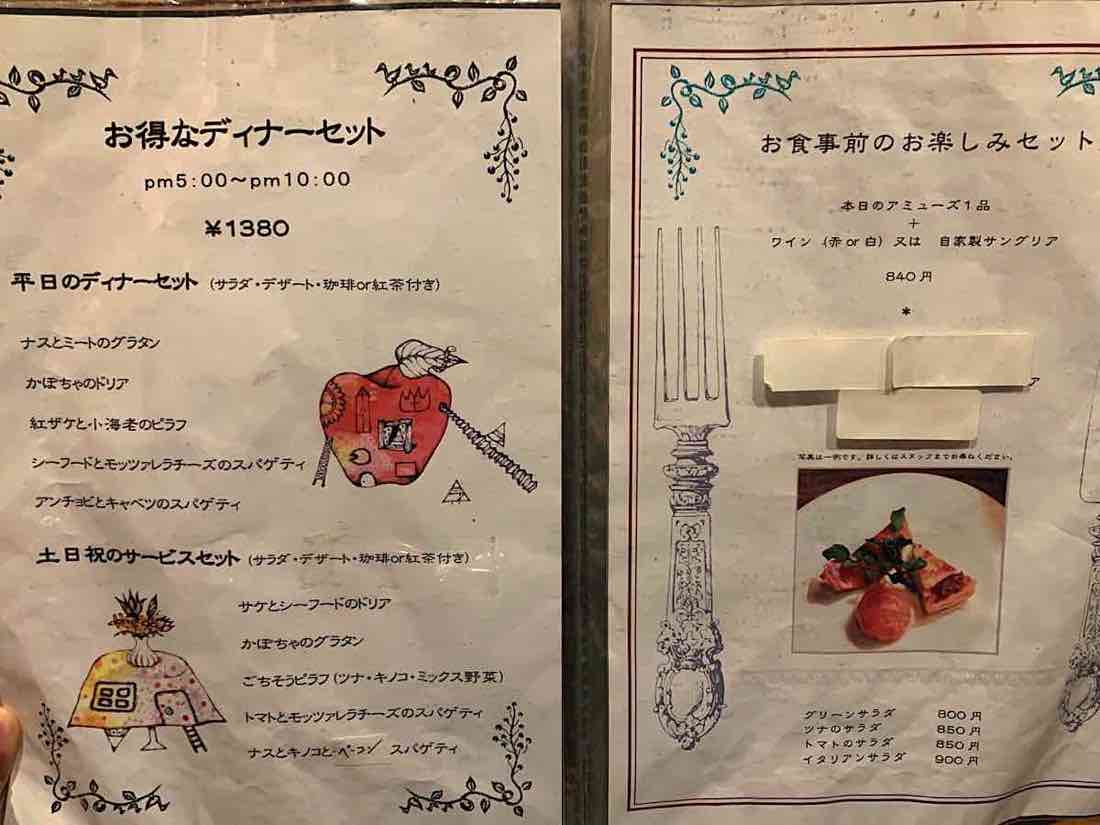 お得なディナーセット
pm5:00〜pm10:00
¥1380
平日のディナーセット (サラダ・デザート・珈琲or紅茶付き)
ナスとミートのグラタン
かぼちゃのドリア
紅ザケと小海老のピラフ
シーフードとモッツァレラチーズのスパゲティ
アンチョビとキャベツのスパゲティ
土日祝のサービスセット (サラダ・デザート・珈琲or紅茶付き)
サケとシーフードのドリア
かぼちゃのグラタン
ごちそうピラフ(ツナ・キノコ・ミックス野菜)
トマトとモッツァレラチーズのスパゲティ
ナスとキノコとベーコン スパゲティ
お食事前のお楽しみセット
本日のアミューズ1品
+
ワイン (赤or白) 又は 自家製サングリア
840円
*
ア
写真は一例です。詳しくはスタッフまでお尋ねください。
グリーンサラダ 800円
ツナのサラダ 850円
トマトのサラダ 850円
イタリアンサラダ 900円